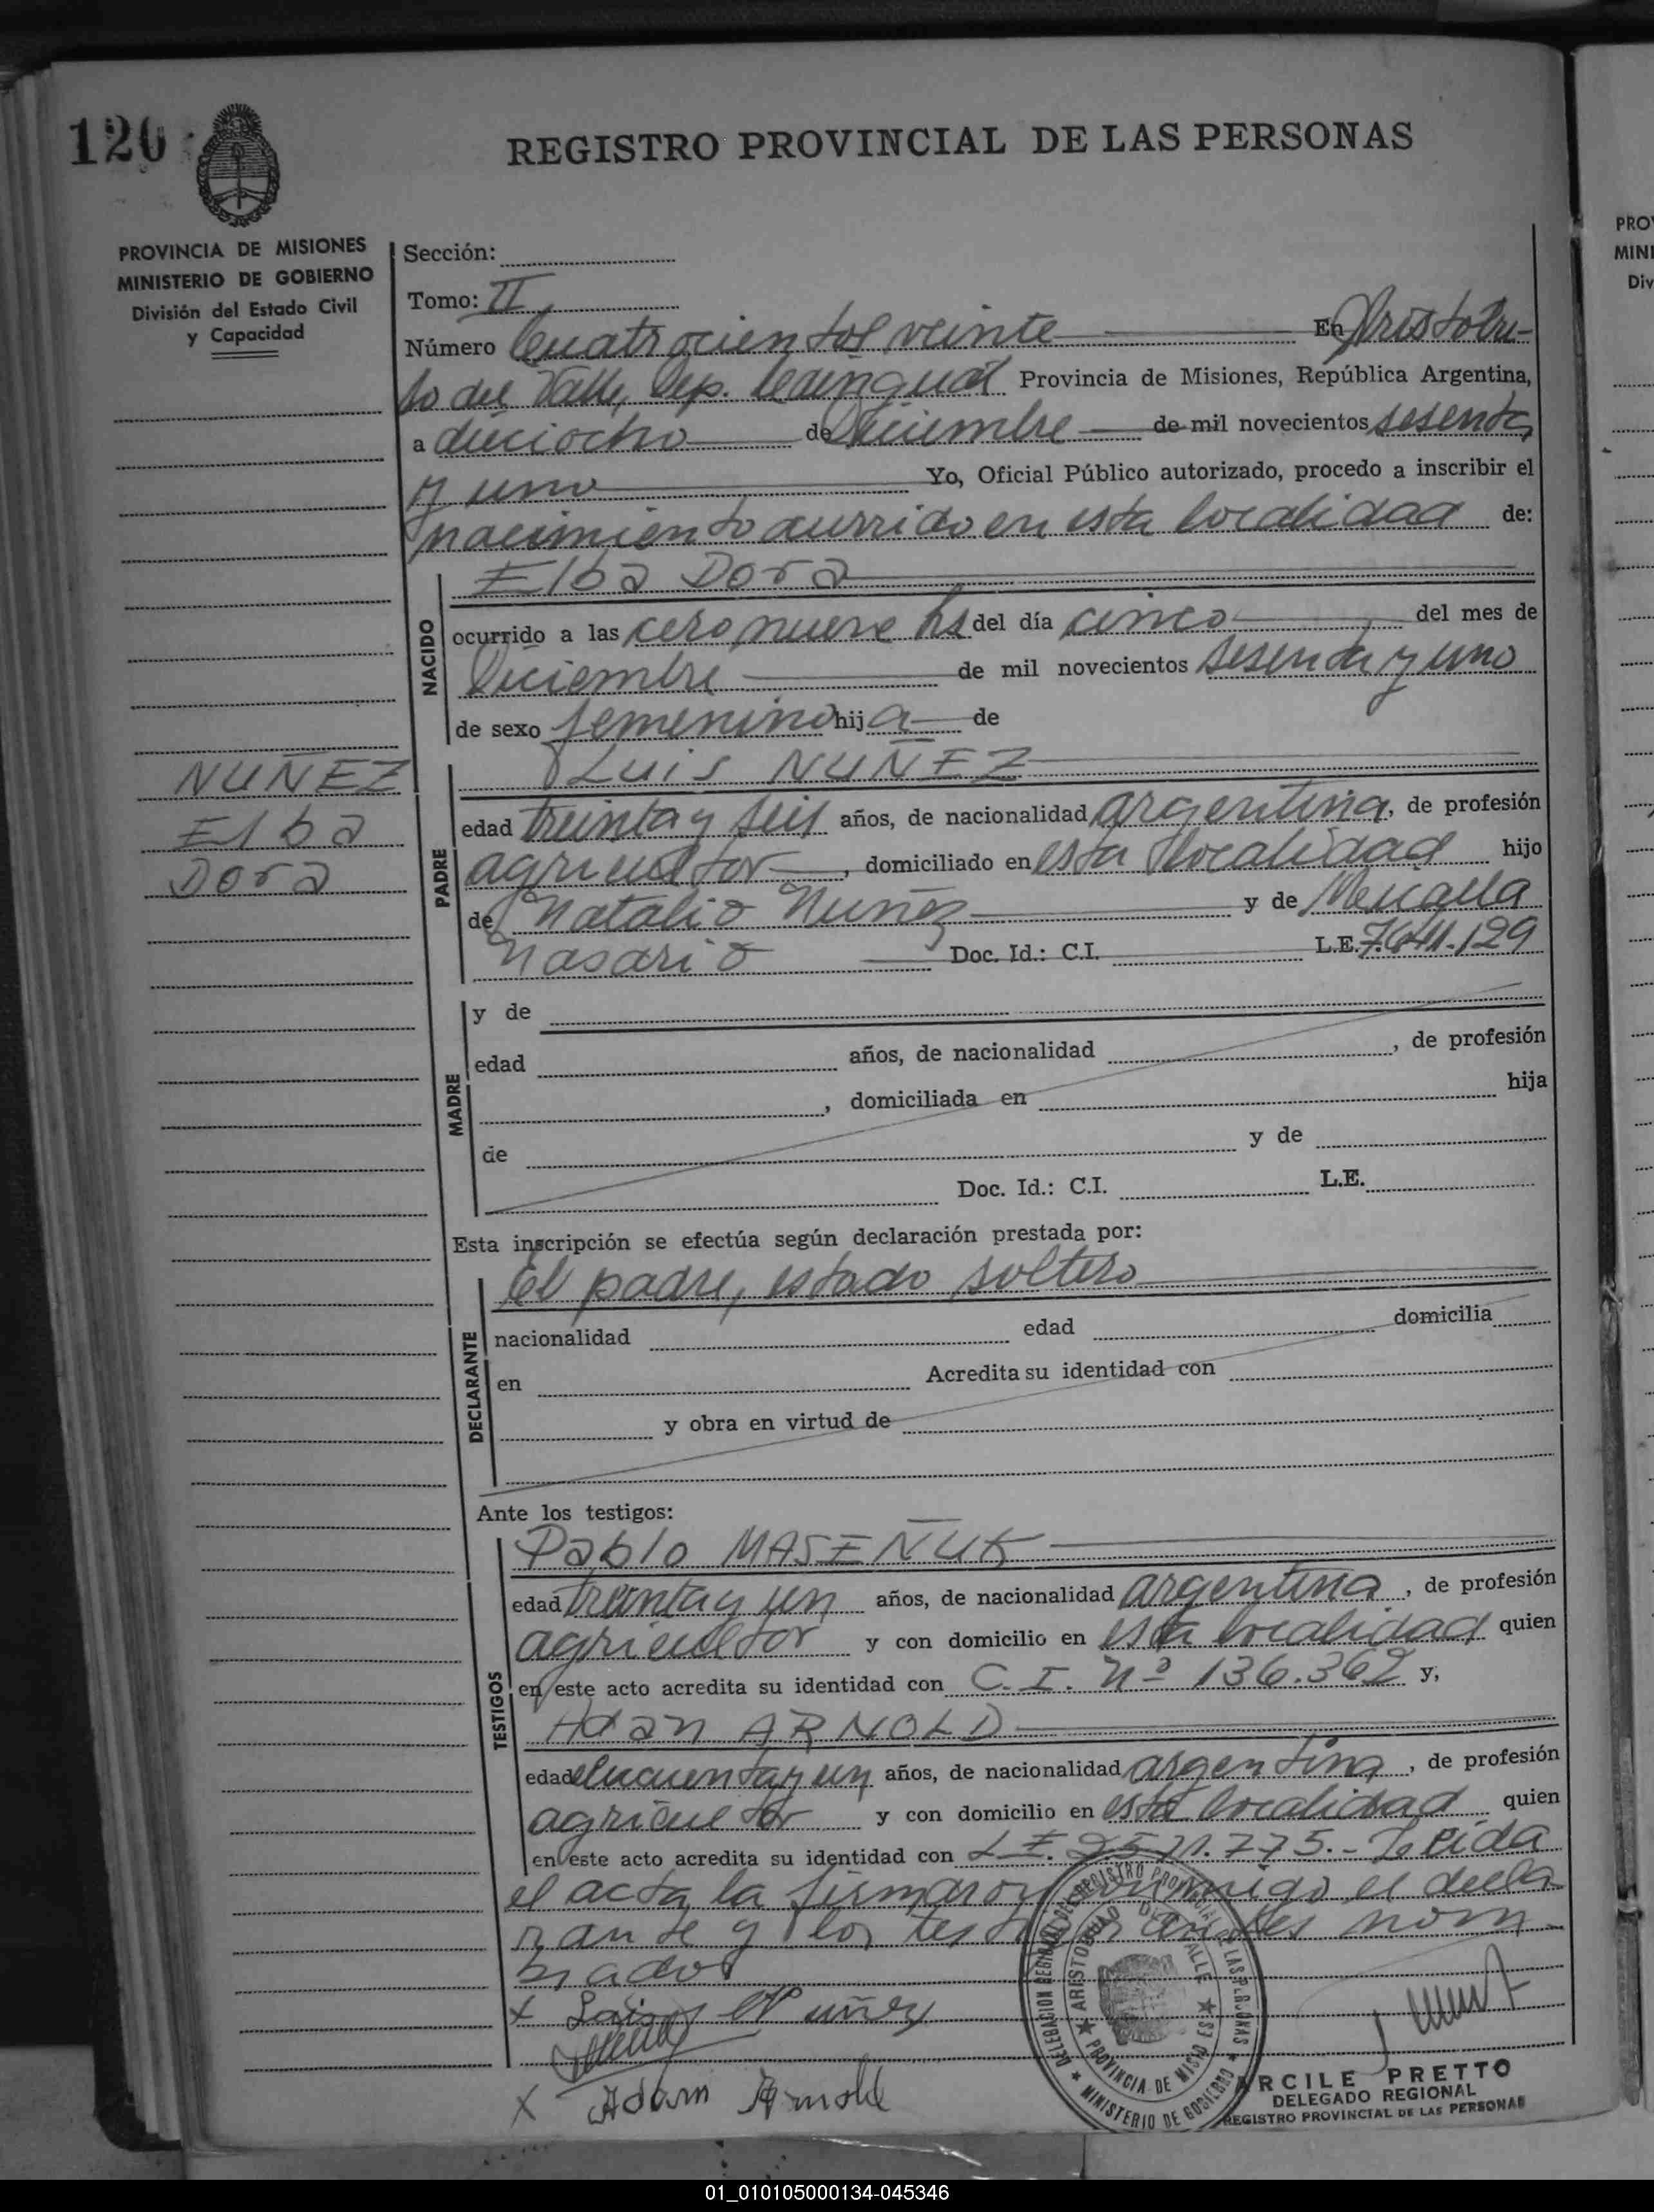 120
REGISTRO PROVINCIAL DE LAS PERSONAS
PROVINCIA DE MISIONES
MINISTERIO DE GOBIERNO
División del Estado Civil
y Capacidad
Sección:
Tomo: II
Número Cuatrocientos veinte En Aristobu-
lo del Valle, Dep. Cainguás Provincia de Misiones, República Argentina,
a dieciocho de Diciembre de mil novecientos sesenta
y uno Yo, Oficial Público autorizado, procedo a inscribir el
nacimiento ocurrido en esta localidad de:
NACIDO
Elba Dora
ocurrido a las cero nueve hs del día cinco del mes de
Diciembre de mil novecientos sesenta y uno
de sexo femenino hija de
NUÑEZ
Elba
Dora
PADRE
Luis NUÑEZ
edad treinta y seis años, de nacionalidad argentina, de profesión
agricultor, domiciliado en esta localidad hijo
de Natalio Nuñez y de Micaela
Nasario Doc. Id.: C.I. L.E. 7.641.129
MADRE
y de
edad años, de nacionalidad , de profesión
, domiciliada en hija
de y de
Doc. Id.: C.I. L.E.
Esta inscripción se efectúa según declaración prestada por:
DECLARANTE
El padre, estado soltero
nacionalidad edad domicilia
en Acredita su identidad con
y obra en virtud de
Ante los testigos:
TESTIGOS
Pablo MASEÑUK
edad treinta y un años, de nacionalidad argentina, de profesión
agricultor y con domicilio en esta localidad quien
en este acto acredita su identidad con C.I. Nº 136.362 y,
Adan ARNOLD
edad cincuenta y un años, de nacionalidad argentina, de profesión
agricultor y con domicilio en esta localidad quien
en este acto acredita su identidad con L.E. Leída
el acta la firmaron conmigo el decla
rante y los testigos antes nom
brados
x Luis Nuñez
x Adam Arnold
DELEGACION REGIONAL DEL REGISTRO PROVINCIAL DE LAS PERSONAS
★ ARISTOBULO DEL VALLE ★
PROVINCIA DE MISIONES
★ MINISTERIO DE GOBIERNO ★
ARCILE PRETTO
DELEGADO REGIONAL
REGISTRO PROVINCIAL DE LAS PERSONAS
PRO
MINI
Div
01_010105000134-045346